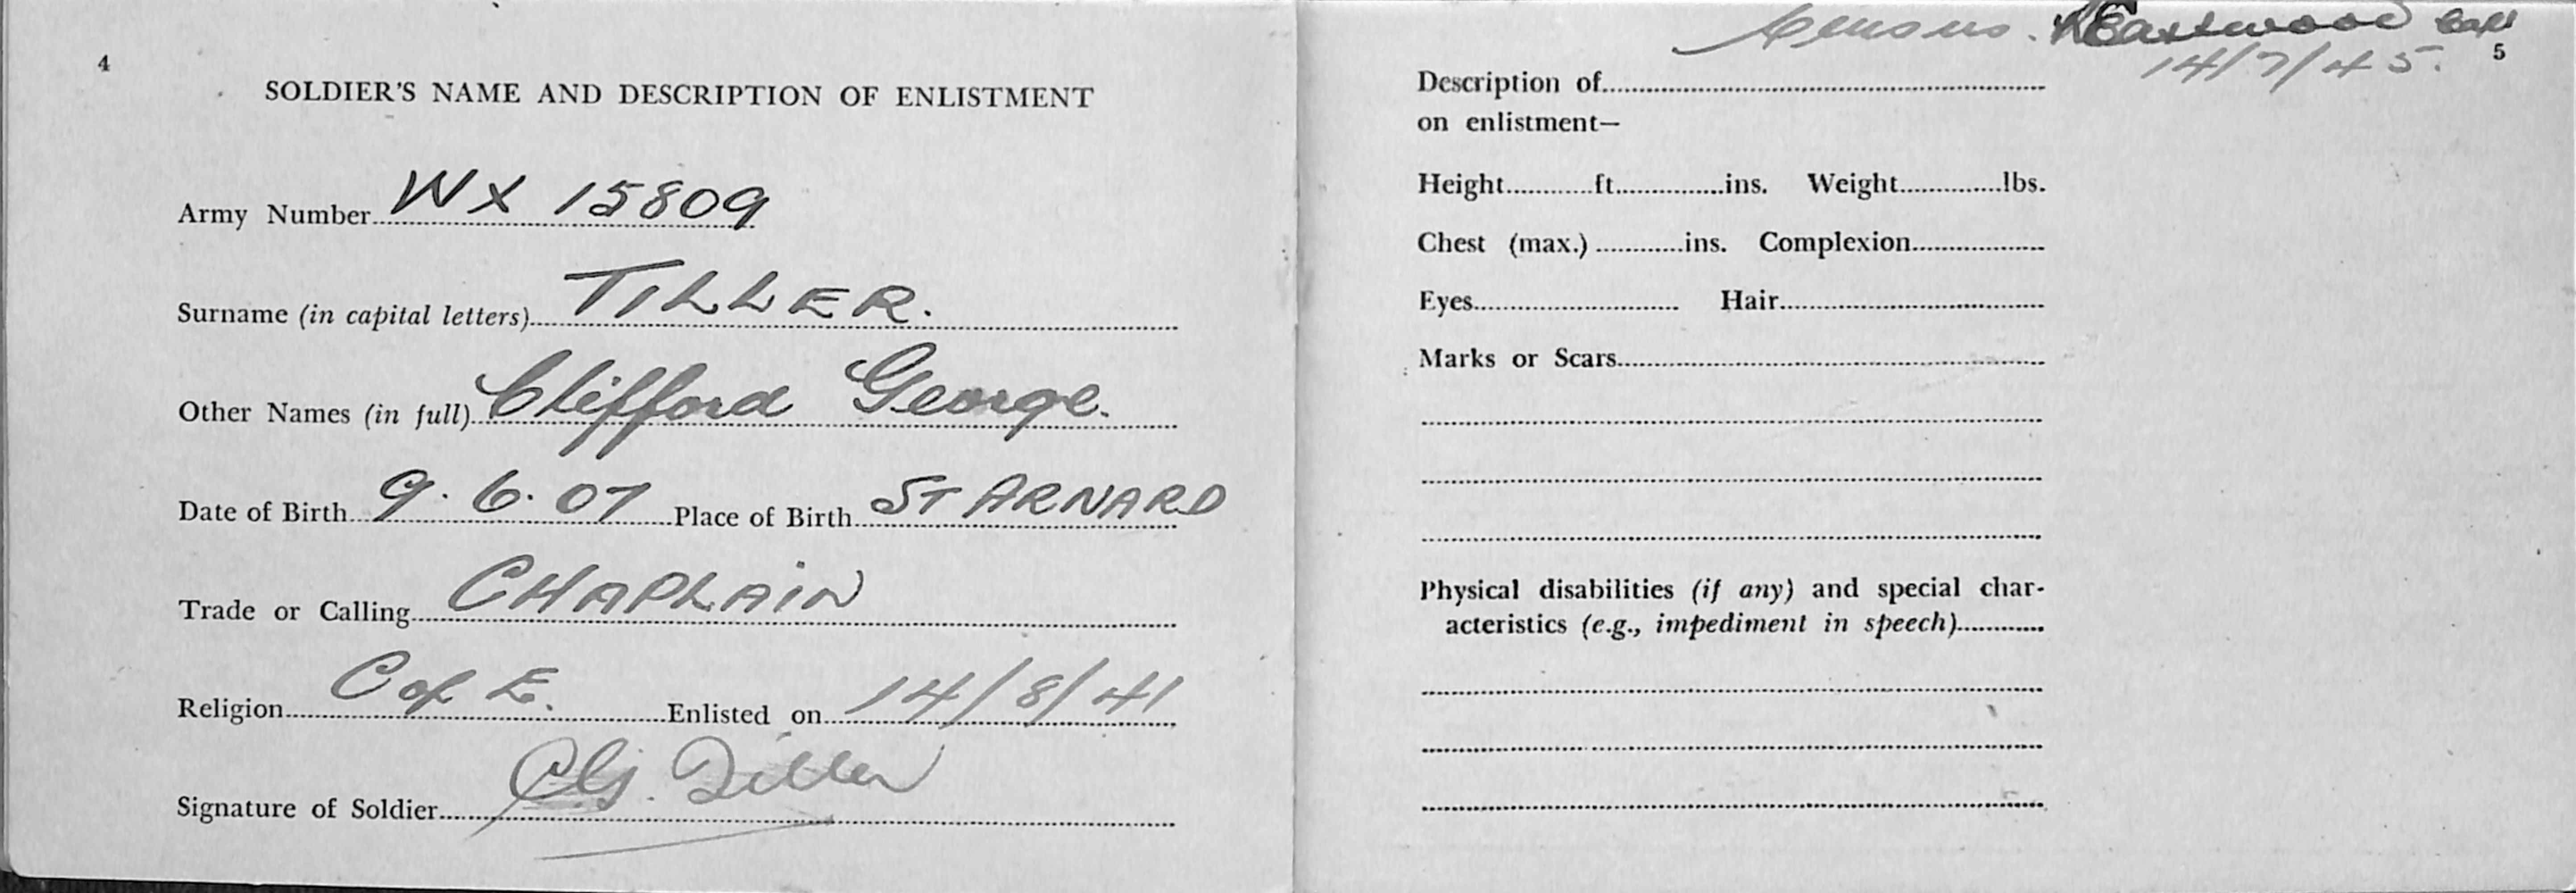 4
SOLDIER'S NAME AND DESCRIPTION OF ENLISTMENT
Army Number WX 15809
Surname (in capital letters) TILLER.
Other Names (in full) Clifford George.
Date of Birth 9.6.07 Place of Birth ST ARNARD
Trade or Calling CHAPLAIN
Religion C of E. Enlisted on 14/8/41
Signature of Soldier CG. Tiller
Census. Eastwood Capt
14/7/45.
5
Description of
on enlistment—
Height ft. ins. Weight lbs.
Chest (max.) ins. Complexion
Eyes Hair
Marks or Scars
Physical disabilities (if any) and special char-
acteristics (e.g., impediment in speech)